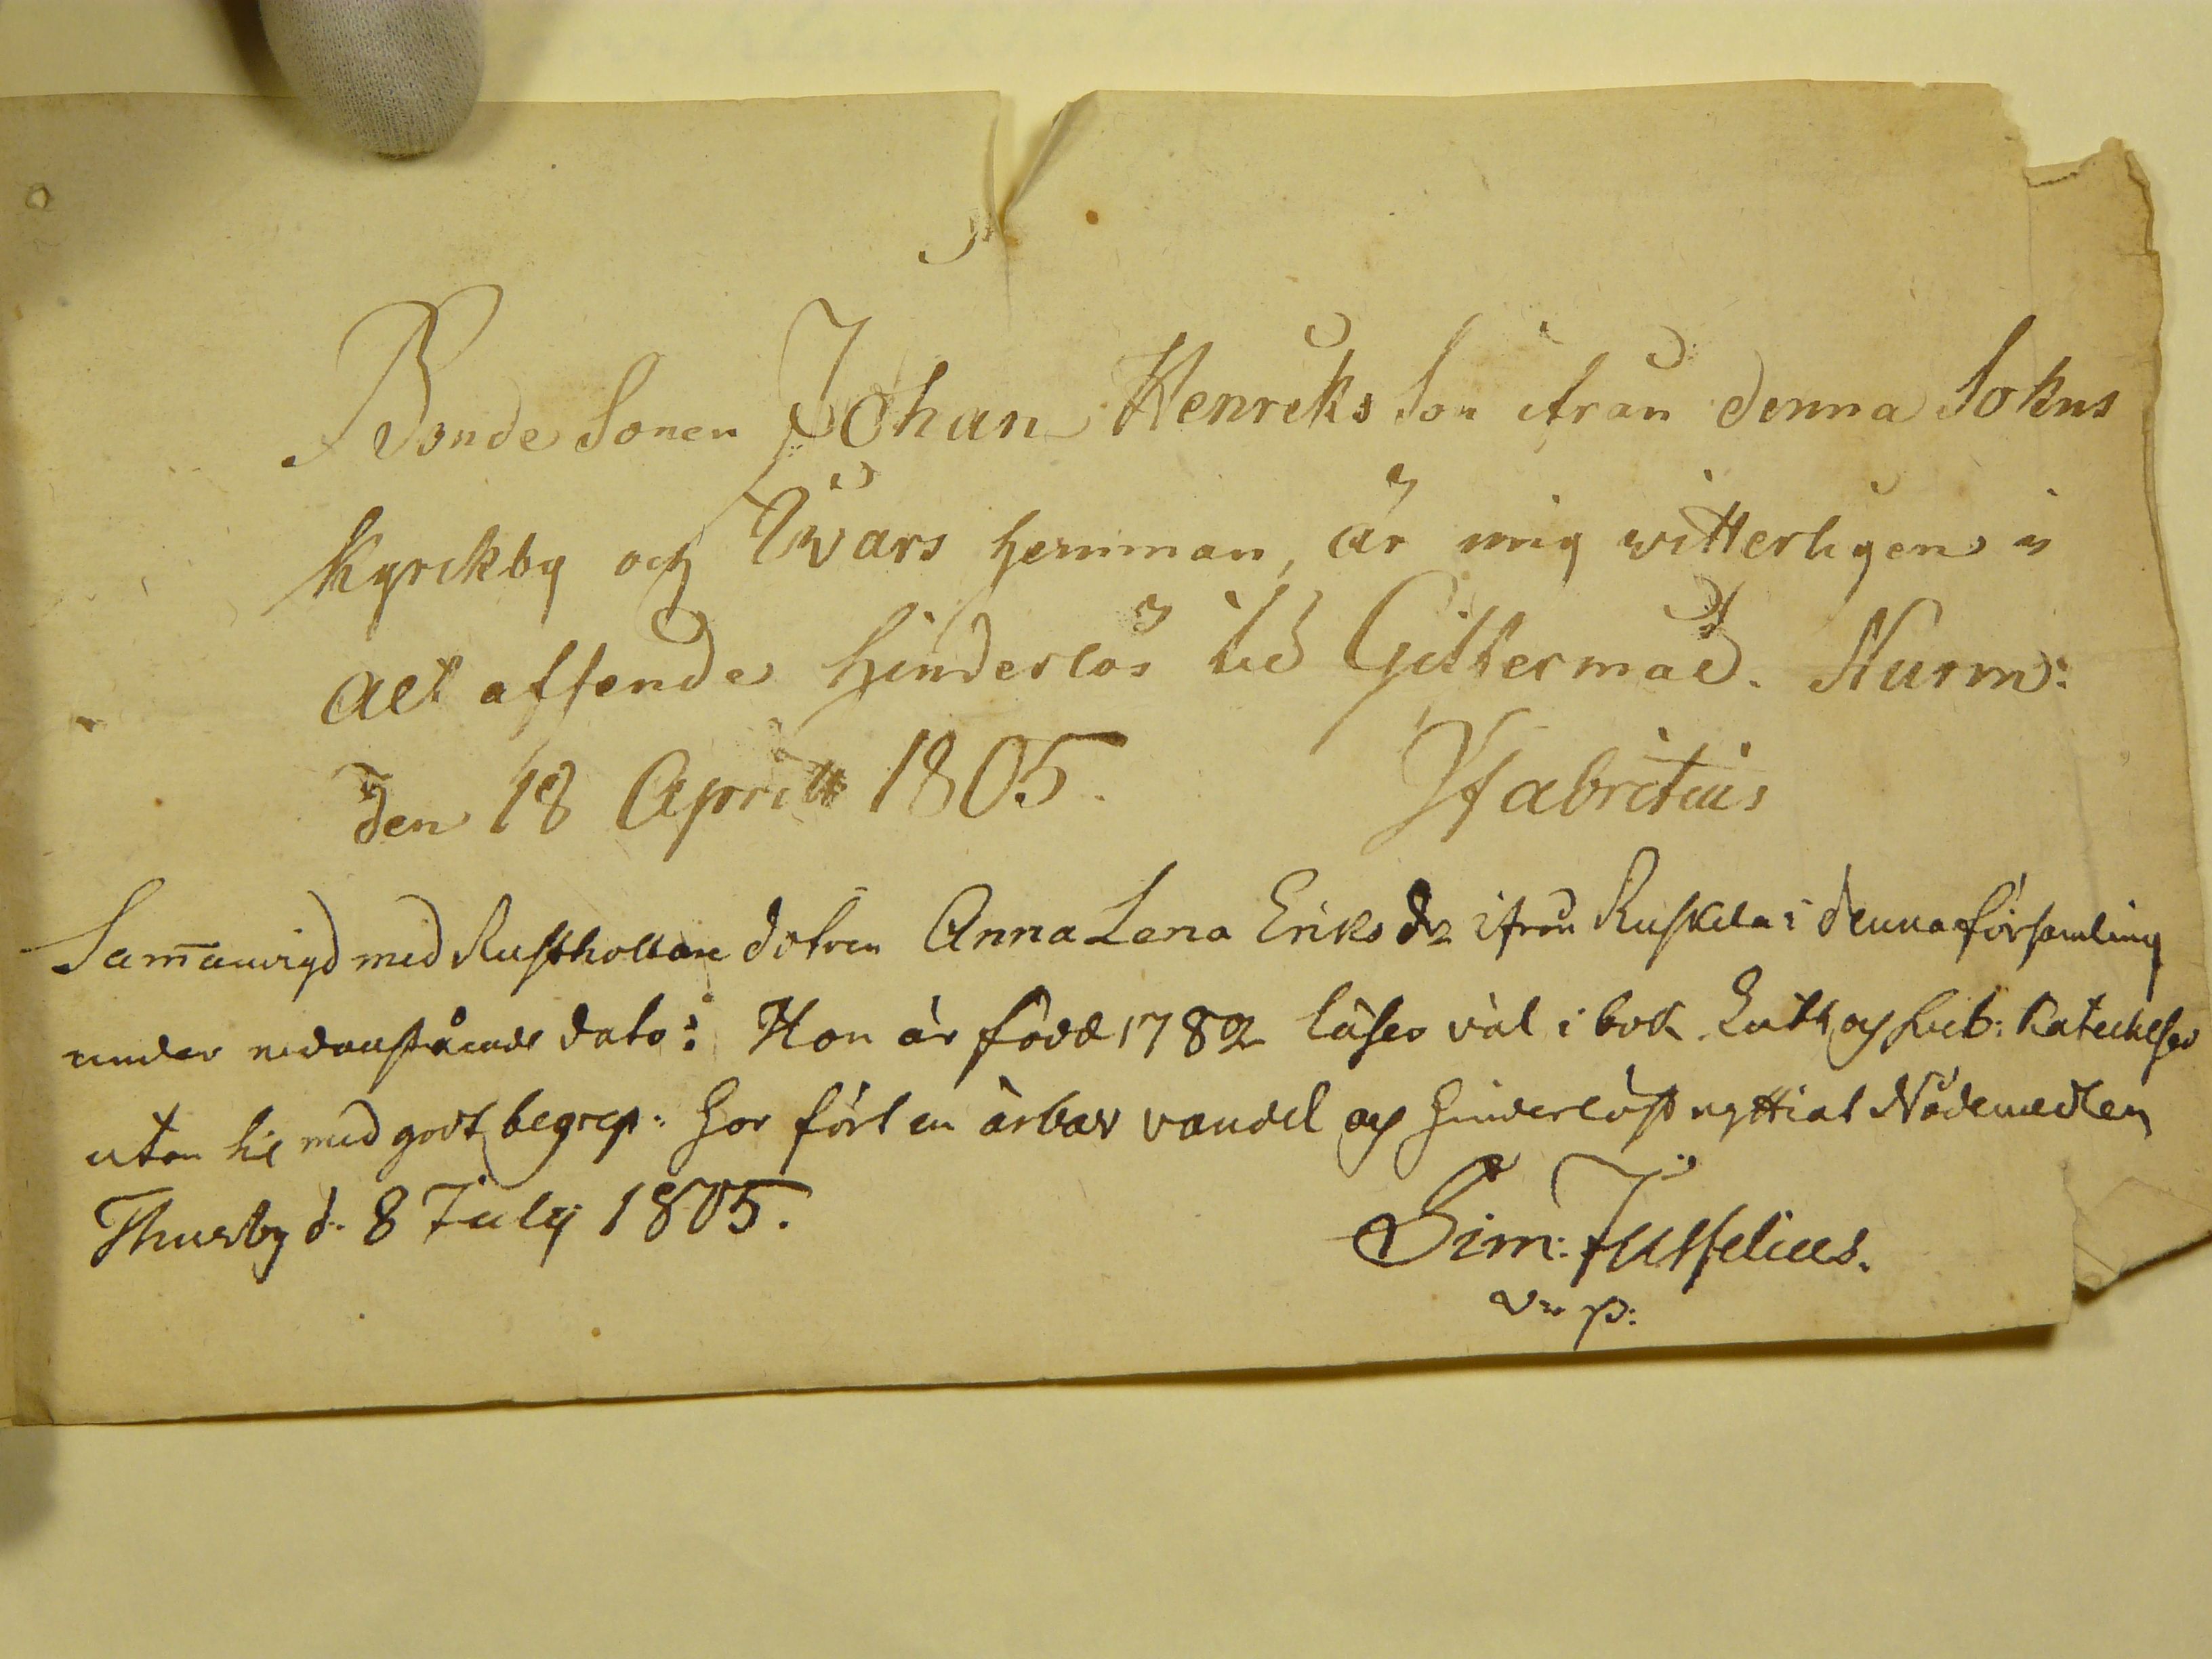 Bonde Sonen Johan Henriks Son ifrån denna Sokns
Kyrckby och Iwars hemman, är mig witterligen i
alt afseende hinderlös til Giftermål. Nurm:
den 18 Aprill 1805. Wfabritius
Sam̅anvigd med Rusthollare dotren Anna Lena Eriks dr ifrån Ruskela i denna församling
under nedanstående dato: Hon är född 1782 läser väl i bok Luth. och Sveb: Katecheser
utan til med godt begrep. har fört en ärbar vandel och hinderlöst nyttiat Nådemedlen
Thusby d. 8 Julÿ 1805. Sim: Jusselius.
v. p: